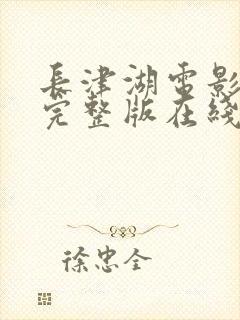 長津湖電影
完整版在綫
徐忠全